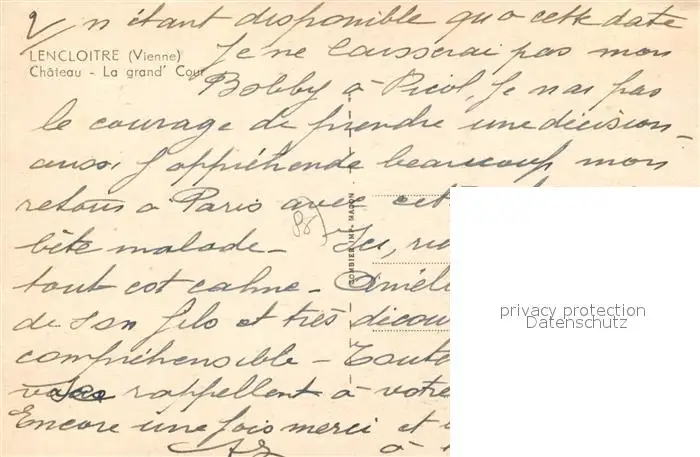 2/ n'étant disponible qu'a cette date
LENCLOITRE (Vienne)
Château - La grand' Cour
Je ne laisserai pas mon
Bobby à Picol, Je n'ai pas
le courage de prendre une décision
aussi j'appréhende beaucoup mon
retour a Paris avec cette
bête malade - Ici,
tout est calme -
de son fils et très
compréhensible -
rappellent à votre
Encore une fois merci et
à
COMBIER IMP. MACON
privacy protection
Datenschutz